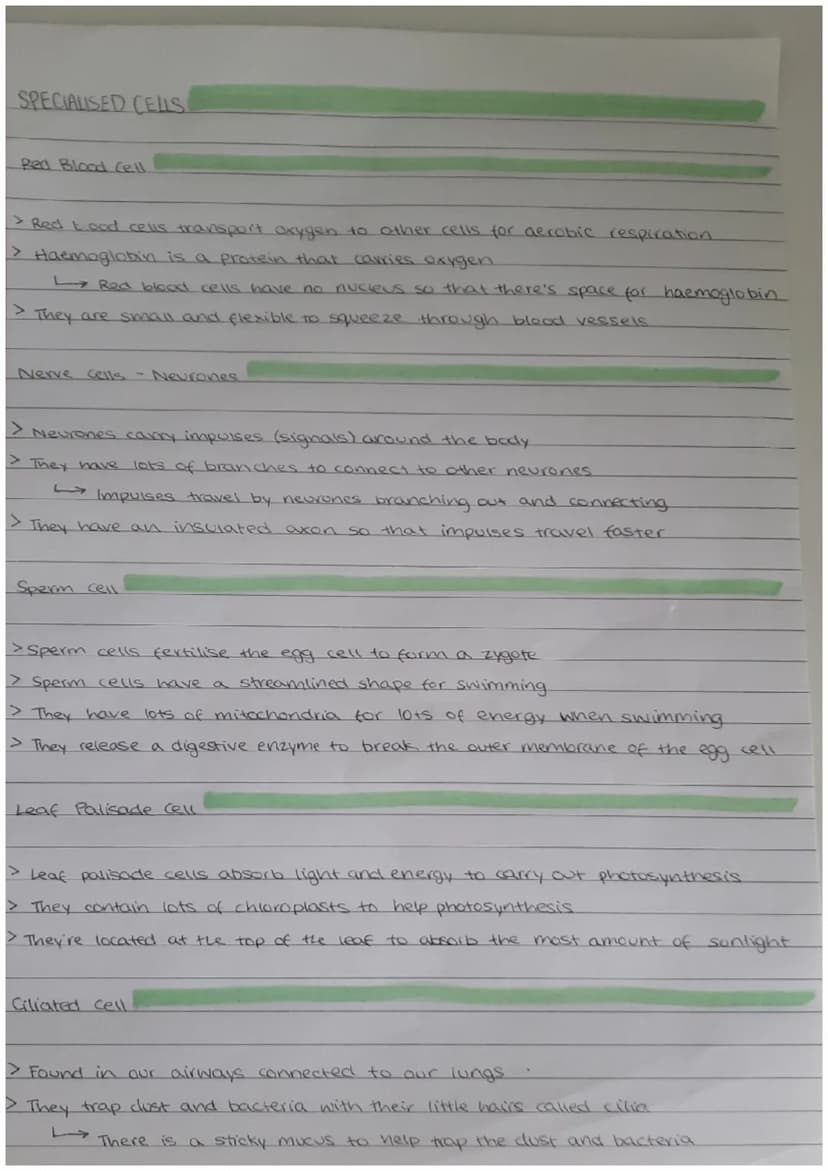 SPECIALISED CELLS
Red Blood Cell
> Red blood cells transport oxygen to other cells for aerobic respiration
> Haemoglobin is a protein that carries oxygen
↳ Red blood cells have no nucleus so that there's space for haemoglobin
> They are small and flexible to squeeze through blood vessels
Nerve Cells - Neurones
> Neurones carry impulses (signals) around the body
> They have lots of branches to connect to other neurones
↳ Impulses travel by neurones branching out and connecting
> They have an insulated axon so that impulses travel faster
Sperm cell
> Sperm cells fertilise the egg cell to form a zygote
> Sperm cells have a streamlined shape for swimming
> They have lots of mitochondria for lots of energy when swimming
> They release a digestive enzyme to break the outer membrane of the egg cell
Leaf Palisade Cell
> Leaf palisade cells absorb light and energy to carry out photosynthesis
> They contain lots of chloroplasts to help photosynthesis
> They're located at the top of the leaf to absorb the most amount of sunlight
Ciliated Cell
> Found in our airways connected to our lungs
> They trap dust and bacteria with their little hairs called cilia
↳ There is a sticky mucus to help trap the dust and bacteria